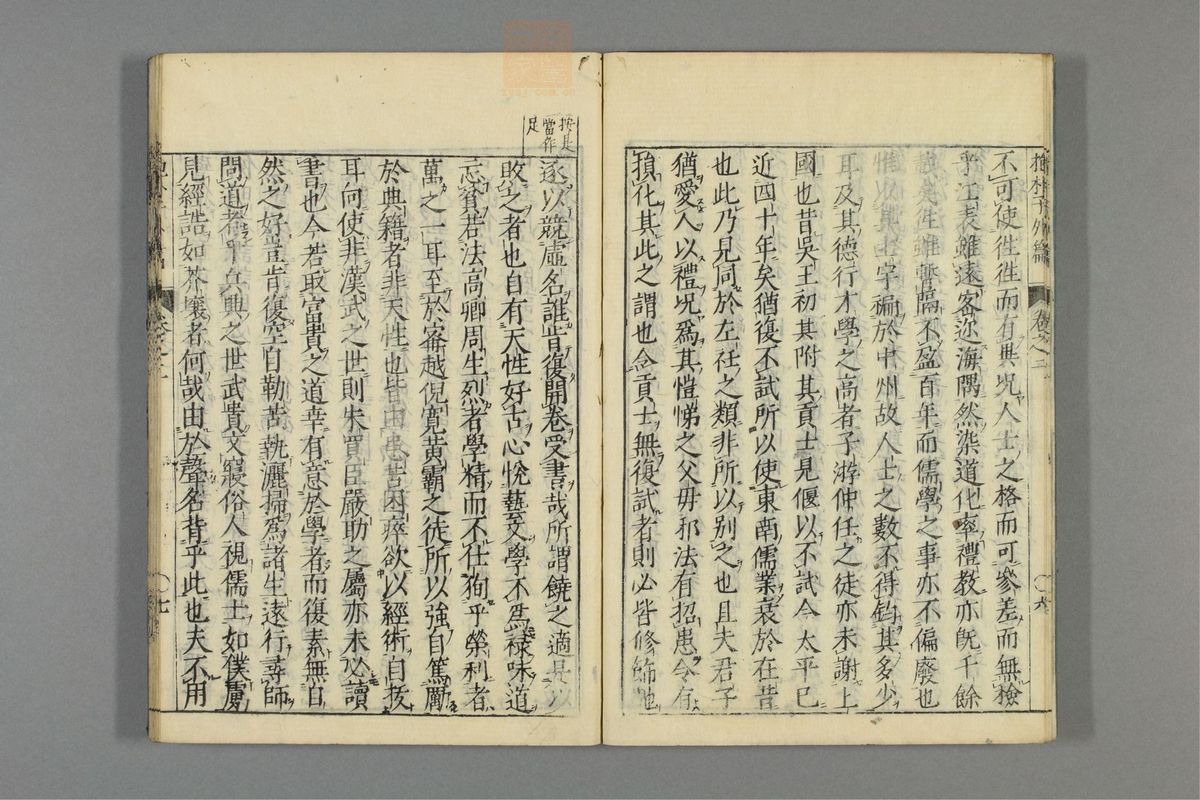 抱朴子外篇 卷之二 〇六
不可使徃徃而有異況人士之格而可參差而無檢
乎江表雖遠密邇海隅然染道化率禮教亦旣千餘
載矣徃雖暫隔不盈百年而儒學之事亦不偏廢也
惟以其土宇褊於中州故人士之數不得鈞其多少
耳及其德行才學之高者子游仲任之徒亦未謝上
國也昔吳王初其附其貢士見偃以不試今太平已
近四十年矣猶復不試所以使東南儒業衰於在昔
也此乃見同於左衽之類非所以别之也且夫君子
猶愛人以禮况爲其愷悌之父毋邪法有招患令有
損化其此之謂也今貢士無復試者則必皆修飾馳
按是
當作
足
逐以競虛名誰肯復開卷受書哉所謂饒之適是以
敗之者也自有天性好古心悅藝文學不爲祿味道
忘貧若法高卿周生烈者學精而不仕狥乎榮利者
萬之一耳至於甯越倪寛黃霸之徒所以強自篤厲
於典籍者非天性也皆由患苦困瘁欲以經術自拔
耳向使非漢武之世則朱買臣嚴助之屬亦未必讀
書也今若取富貴之道幸有意於學者而復素無自
然之好豈肯復空自勤苦執灑掃爲諸生遠行尋師
問道者乎兵興之世武貴文寢俗人視儒士如僕虜
見經誥如芥壤者何哉由於聲名背乎此也夫不用
〇七